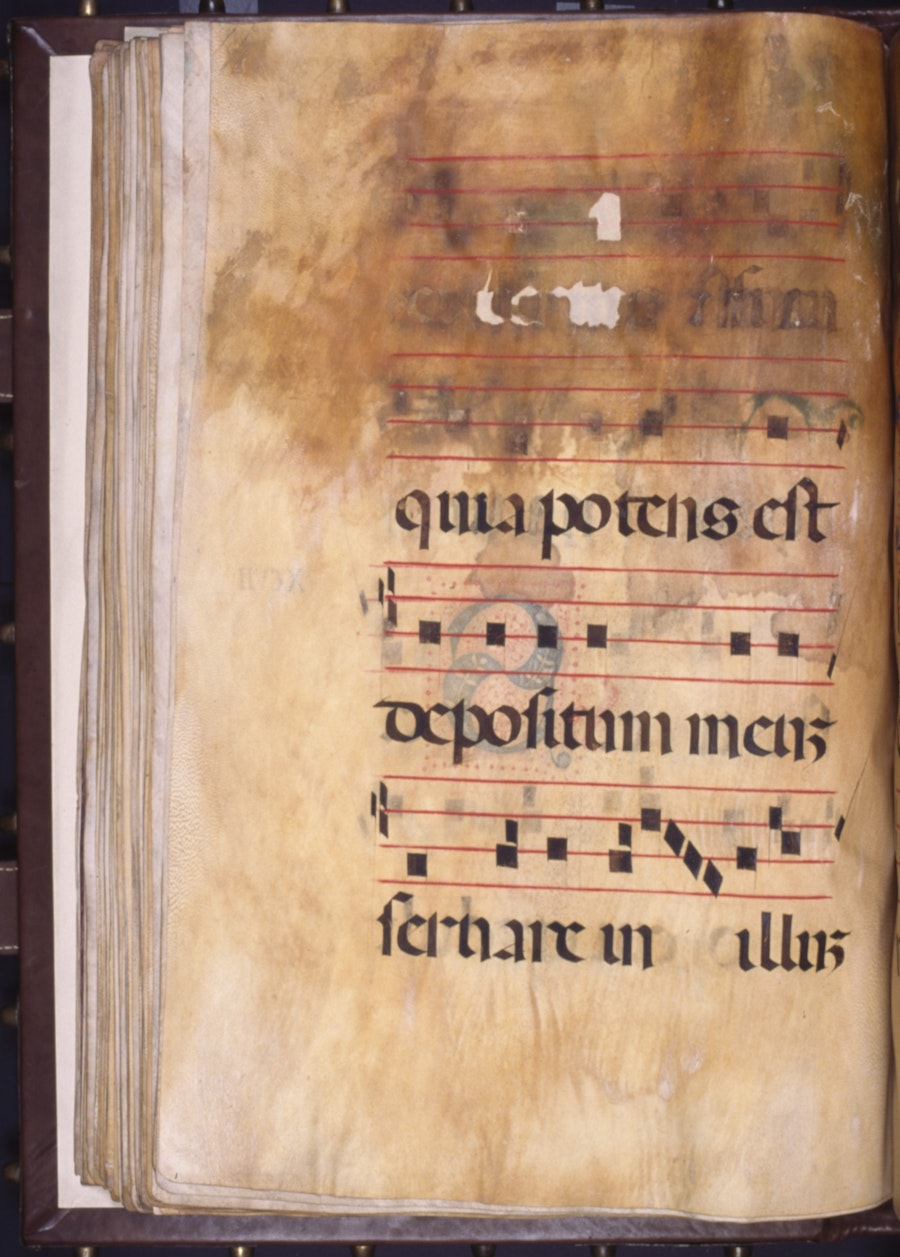 quia potens est
depositum meuz
seruare in illuz